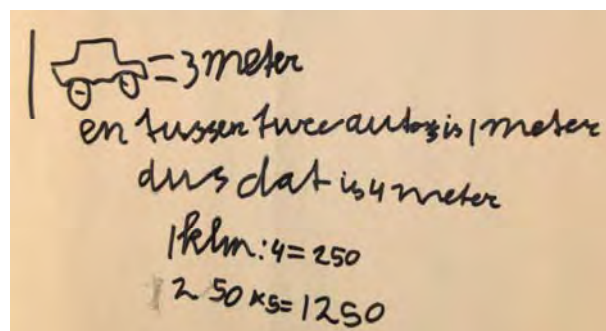 1 = 3 meter
en tussen twee auto's is 1 meter
dus dat is 4 meter
1 klm : 4 = 250
250 x 5 = 1250